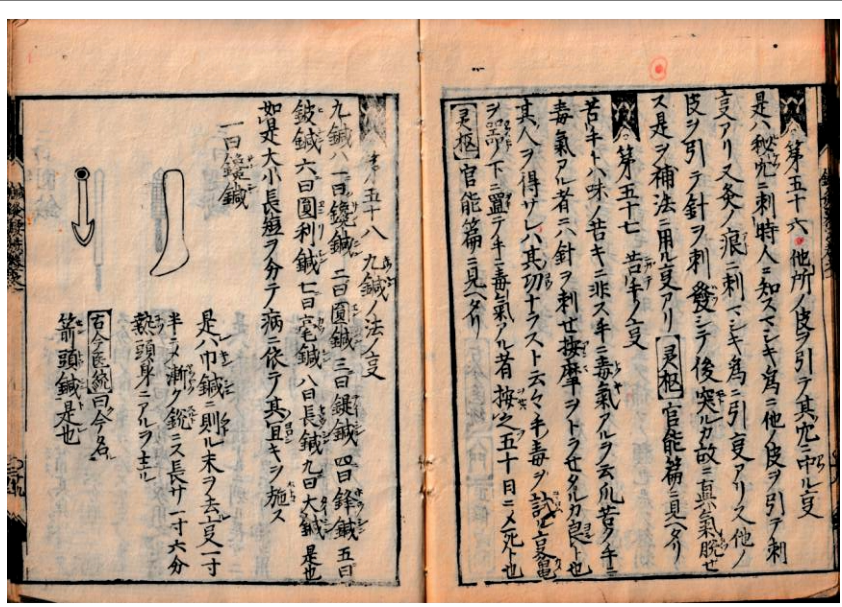 第五十六 他所ノ皮ヲ引テ其穴ニ中ル亊
是ハ秘穴ニ刺時人ニ知スマシキ為ニ他ノ皮ヲ引テ刺
亊アリ又灸ノ痕ニ刺マシキ為ニ引亊アリス他ノ
皮ヲ引テ針ヲ刺發シテ後突ルカ故ニ真氣脱せ
ス是ヲ補法ニ用ル亊アリ 灵枢 官能篇ニ見ヘタリ
第五十七 苦手ノ亊
苦手トハ味ノ苦キニ非ス手ニ毒氣アルヲ云爪苦ク手ニ
毒氣アル者ニハ針ヲ刺せ按摩ヲトラせタルカ良ト也
其人ヲ得サレハ其功ナラスト云々手毒ヲ試ル亊黽
ヲ下ニ置テ手ニ毒氣アル者按之五十日ニメ死ト也
灵枢 官能篇ニ見ヘタリ
第五十八 九鍼ノ法ノ亊
九鍼ハ一曰鑱鍼 二曰圓鍼 三曰鍉鍼 四曰鋒鍼 五曰
鈹鍼 六曰圓利鍼 七曰毫鍼 八曰長鍼 九曰大鍼 是也
如是大小長短ヲ分テ病ニ依テ其宜キヲ施ス
一曰鑱鍼
是ハ巾鍼ニ則ル末ヲ去亊一寸
半ニメ漸ク鋭ニス長サ一寸六分
熱頭身ニアルヲ主ル
古今医統曰今名
箭頭鍼是也